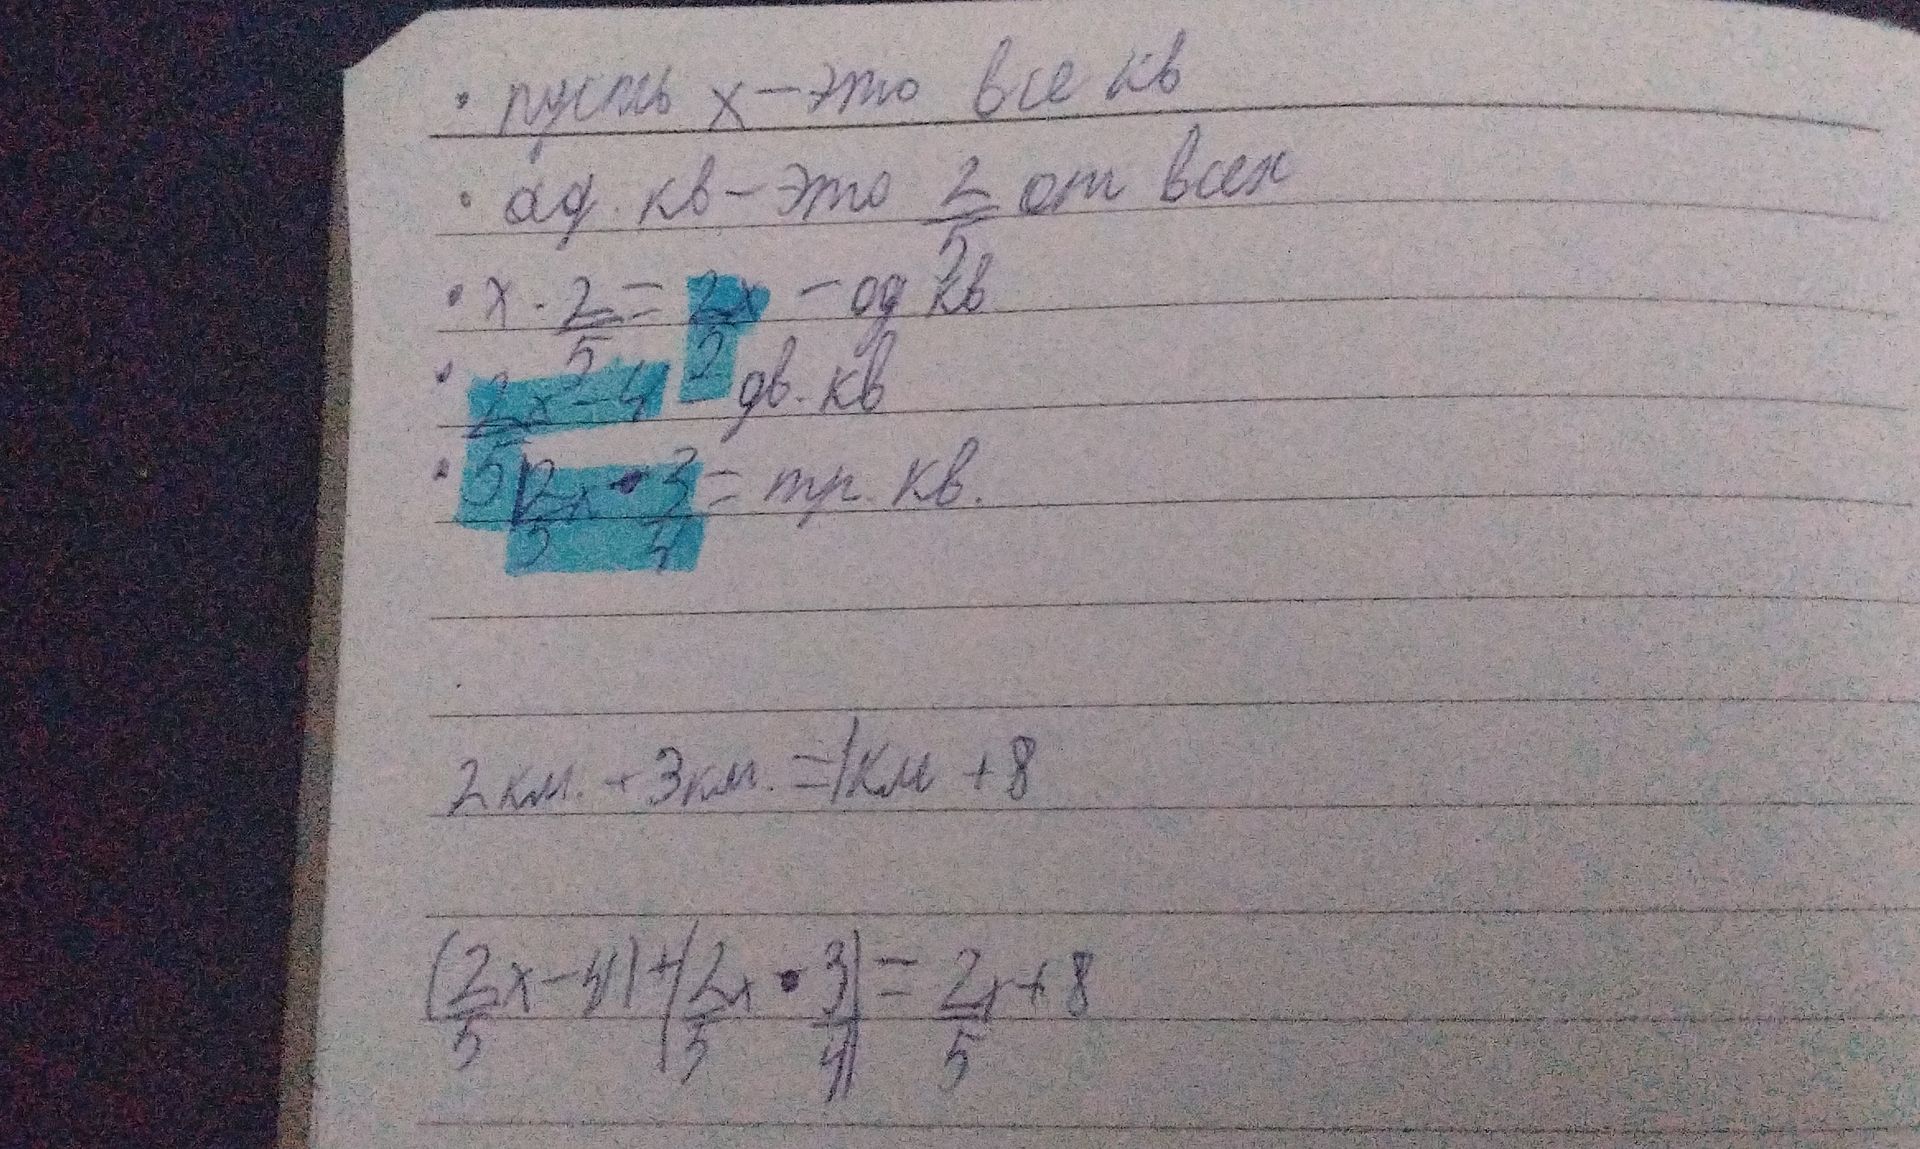 • пусть x – это все кв
• од. кв – это 2/5 от всех
• x · 2/5 = 2x/2 – од кв.
• 2/5 x – 4 – дв. кв
• 2/5 x • 3/4 = тр. кв.
2 км. + 3 км. = 1 км + 8
(2/5 x – 4) + (2/5 x • 3/4) = 2/5 x + 8